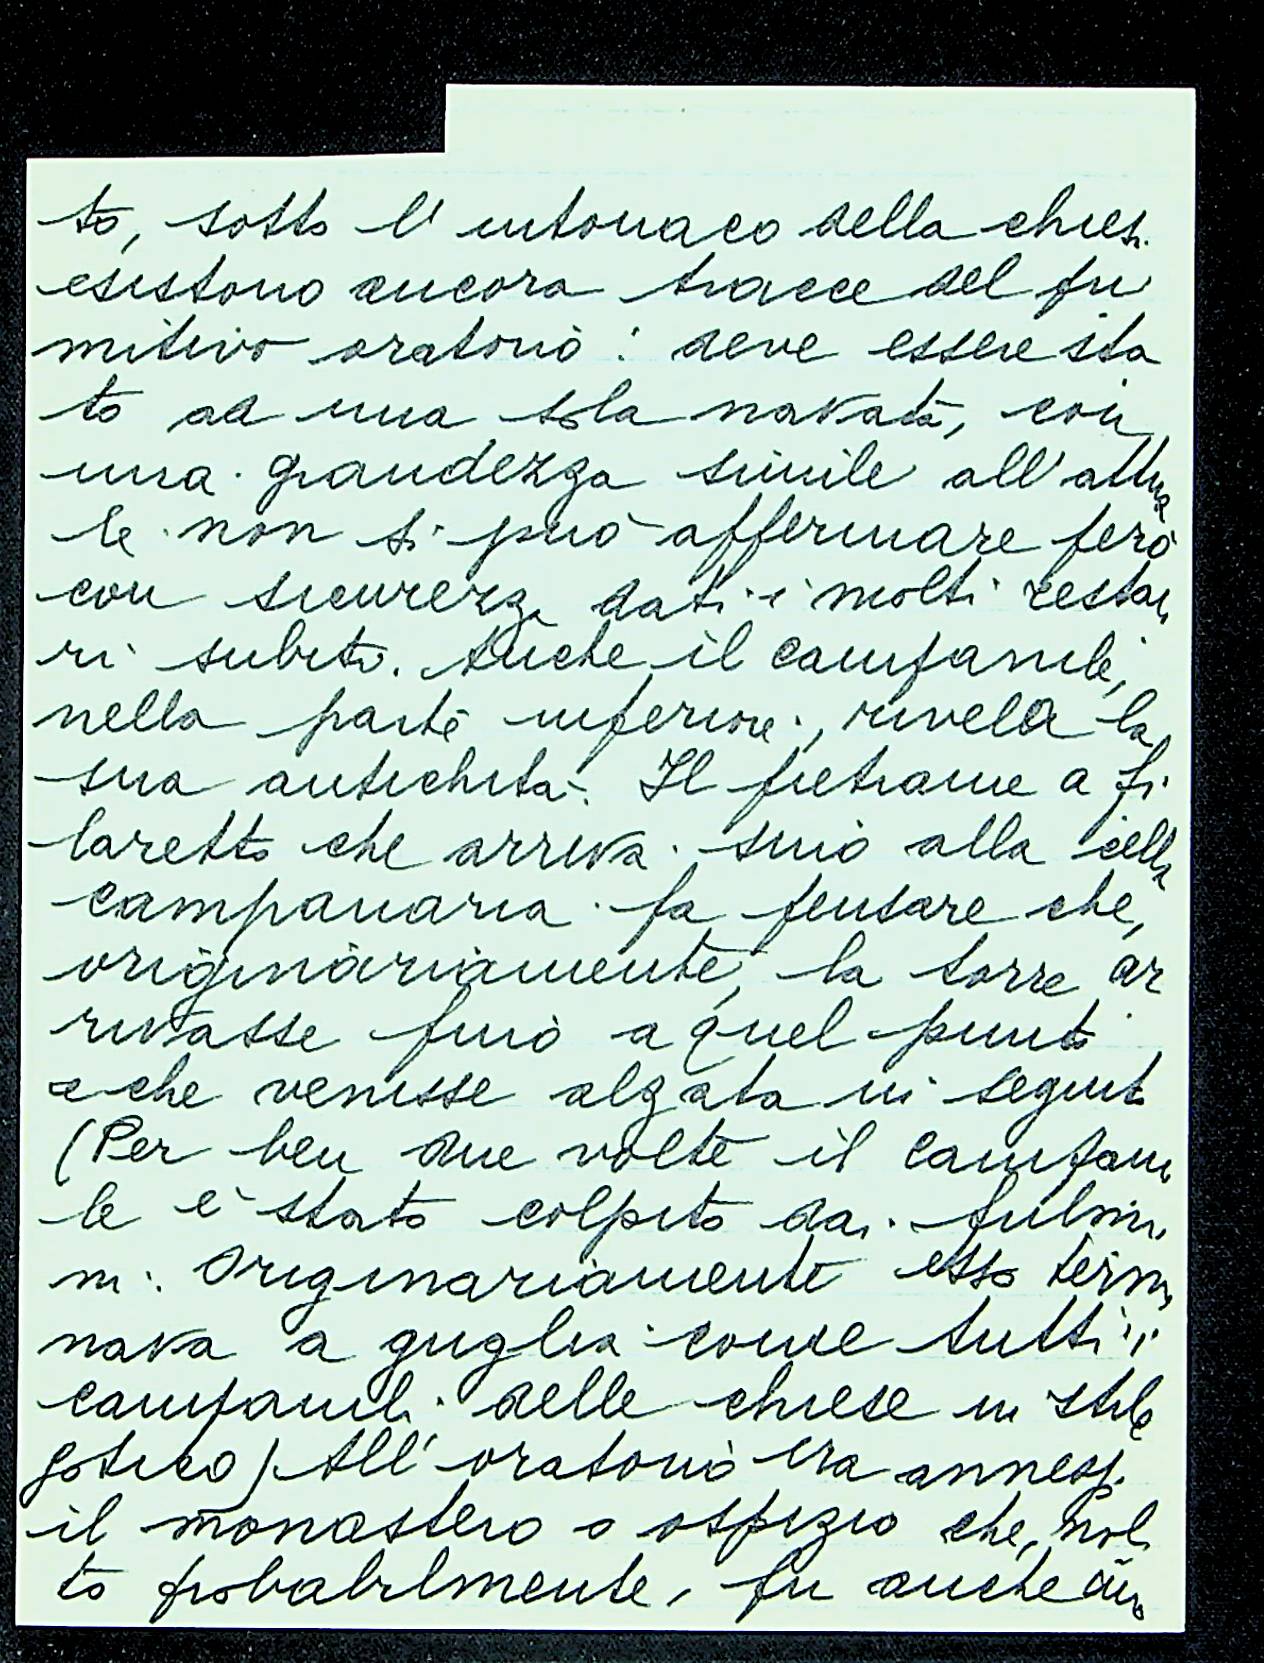 to, sotto l'intonaco della chiesa
esistono ancora tracce del pri
mitivo oratorio: deve essere sta
to ad una sola navata, con
una grandezza simile all'attua
le non si può affermare però
con sicurezza dati i molti restau
ri subiti. Anche il campanile,
nella parte inferiore, rivela la
sua antichità. Il pietrame a fi
laretto che arriva sino alla cella
campanaria fa pensare che,
originariamente, la torre ar
rivasse fino a quel punto
e che venisse alzata in seguito
(Per ben due volte il campani
le è stato colpito dai fulmi
ni. Originariamente esso termi
nava a guglia come tutti i
campanili delle chiese in stile
gotico). All'oratorio era annesso
il monastero o ospizio che, mol
to probabilmente, fu anche